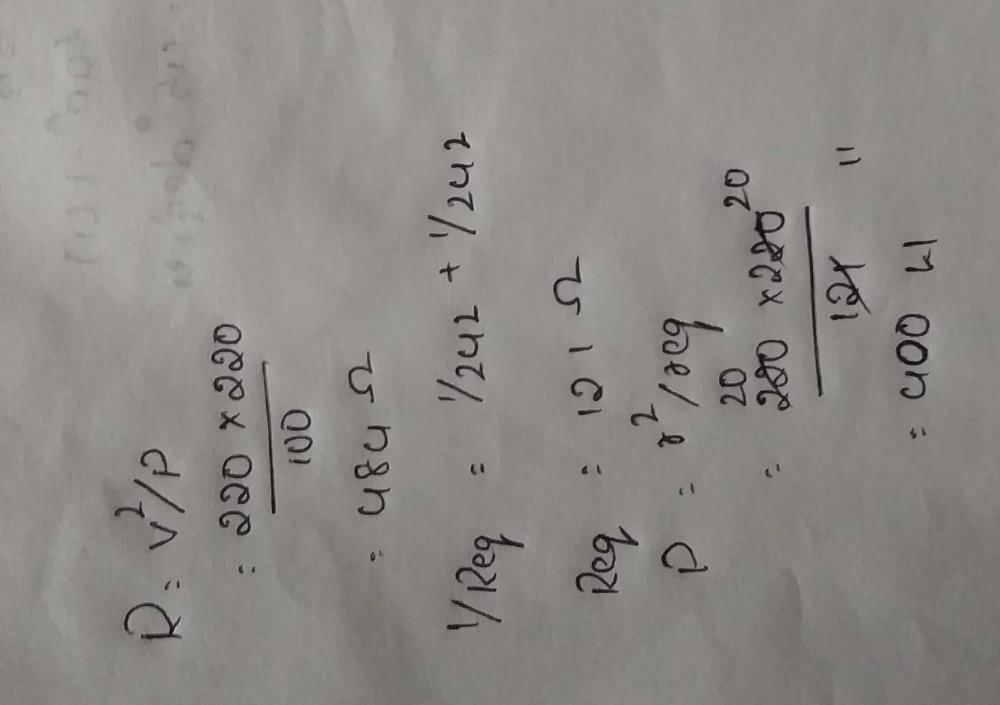 R = V²/P
= 220 × 220
100
= 484 Ω
1/Req = 1/242 + 1/242
Req = 121 Ω
P = v²/req
20 20
= 220 × 220
121 11
= 400 W